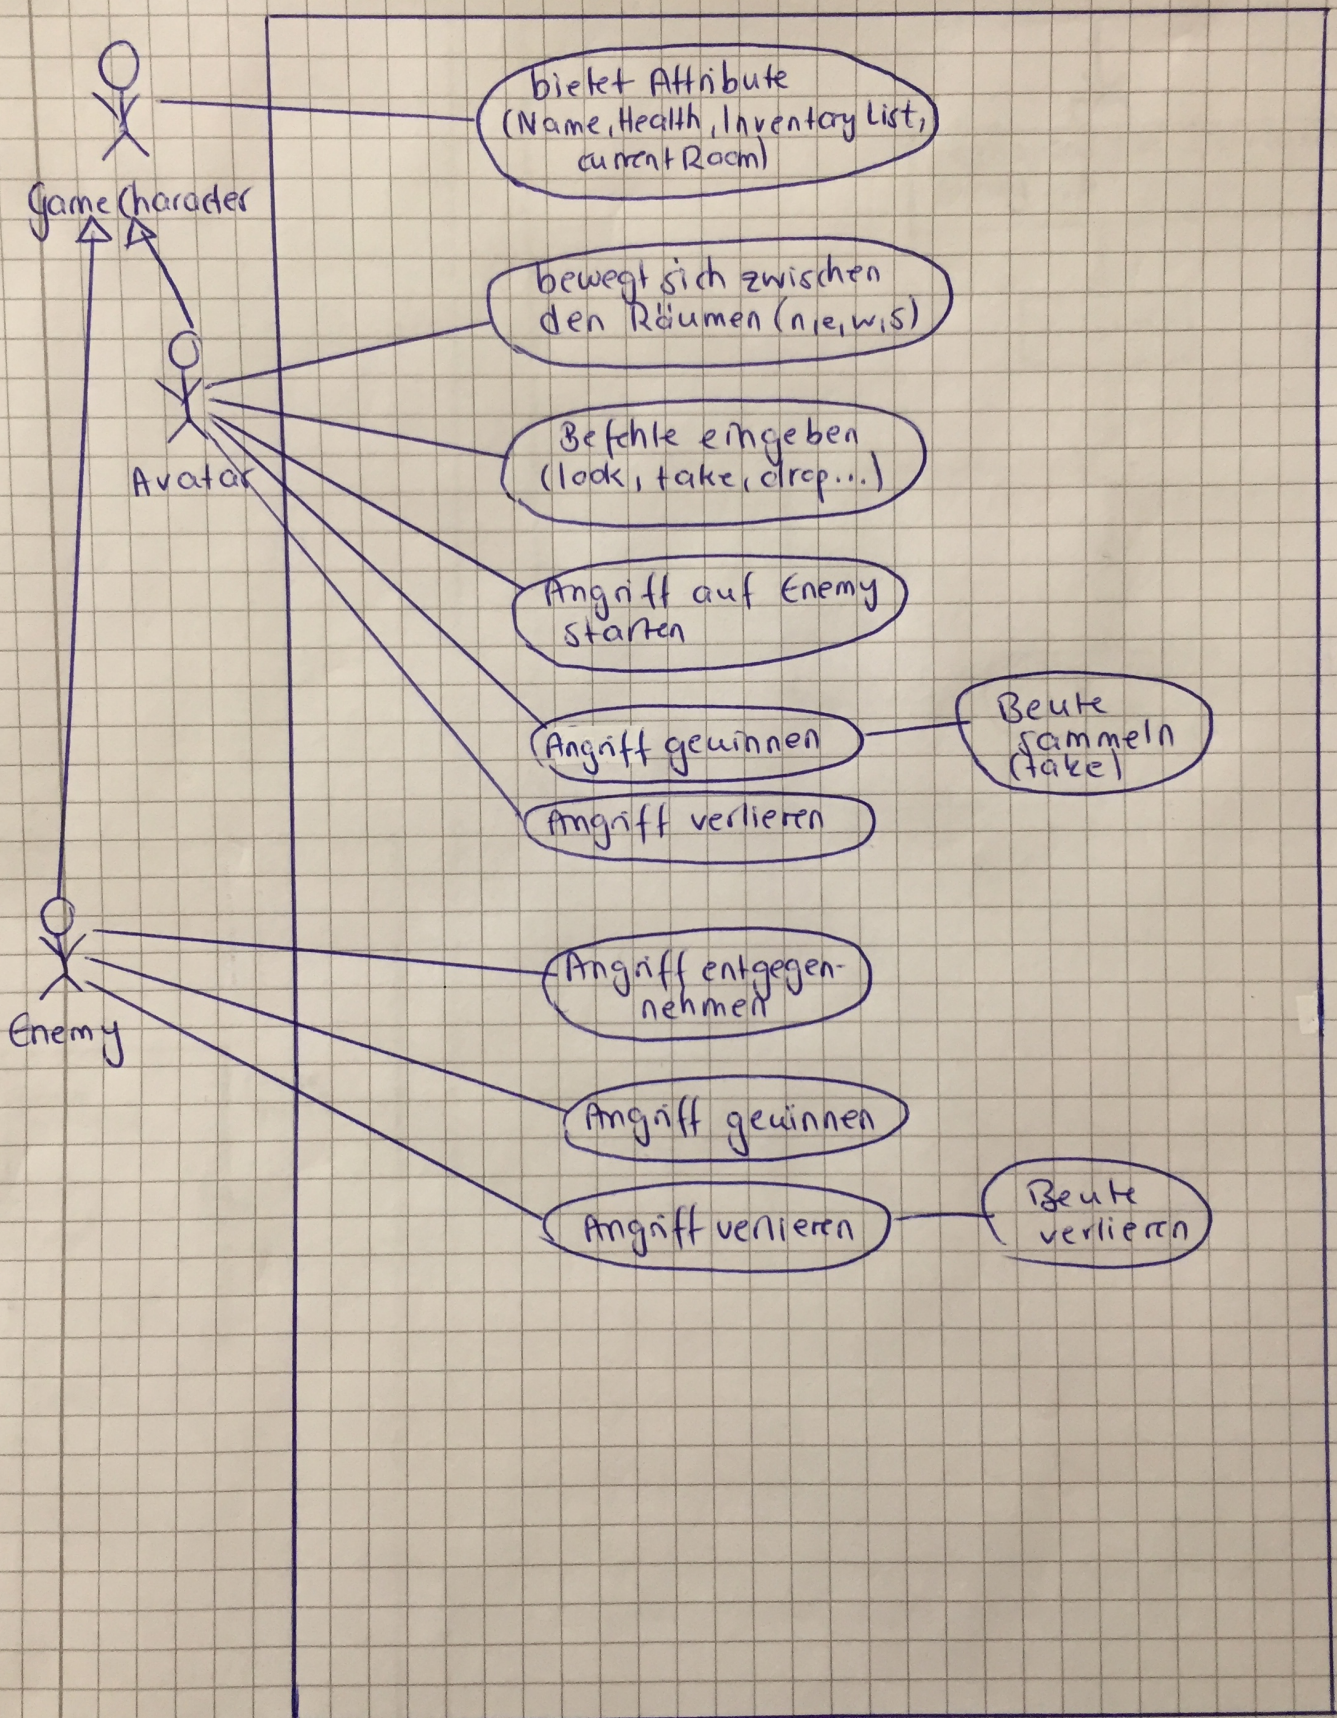 bietet Attribute
(Name, Health, Inventory List,
current Room)
GameCharacter
bewegt sich zwischen
den Räumen (n,e,w,s)
Befehle eingeben
(look, take, drop...)
Avatar
Angriff auf Enemy
starten
Angriff gewinnen
Beute
sammeln
(take)
Angriff verlieren
Angriff entgegen-
nehmen
Enemy
Angriff gewinnen
Angriff verlieren
Beute
verlieren